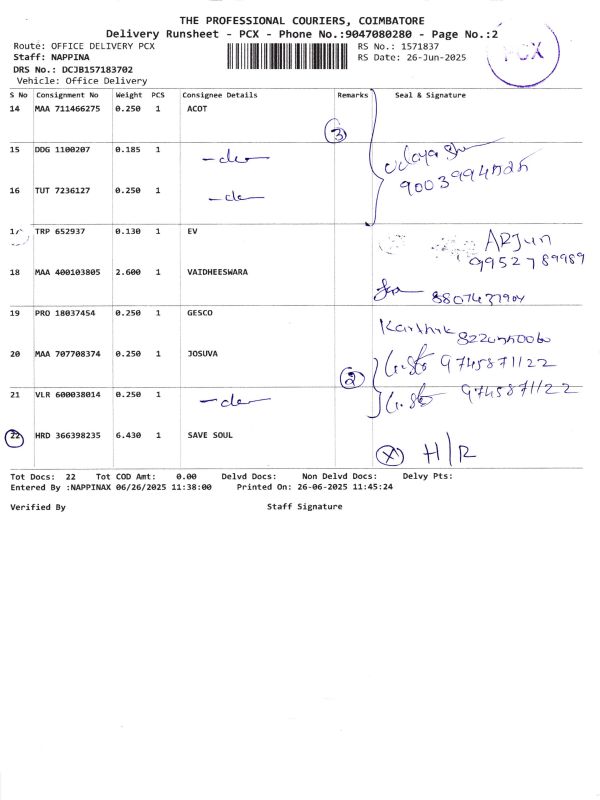 THE PROFESSIONAL COURIERS, COIMBATORE
Delivery Runsheet - PCX - Phone No.:9047080280 - Page No.:2
Route: OFFICE DELIVERY PCX
Staff: NAPPINA
DRS No.: DCJB157183702
Vehicle: Office Delivery
RS No.: 1571837
RS Date: 26-Jun-2025
PCX
S No Consignment No Weight PCS Consignee Details Remarks Seal & Signature
14 MAA 711466275 0.250 1 ACOT
3
15 DDG 1100207 0.185 1 -do-
16 TUT 7236127 0.250 1 -do-
TRP 652937 0.130 1 EV
ARJun
9952789989
18 MAA 400103805 2.600 1 VAIDHEESWARA
8807437904
19 PRO 18037454 0.250 1 GESCO
Karthik
20 MAA 707708374 0.250 1 JOSUVA
9745871122
2
21 VLR 600038014 0.250 1 -do-
9745871122
22 HRD 366398235 6.430 1 SAVE SOUL
X H/R
Tot Docs: 22 Tot COD Amt: 0.00 Delvd Docs: Non Delvd Docs: Delvy Pts:
Entered By :NAPPINAX 06/26/2025 11:38:00 Printed On: 26-06-2025 11:45:24
Verified By Staff Signature